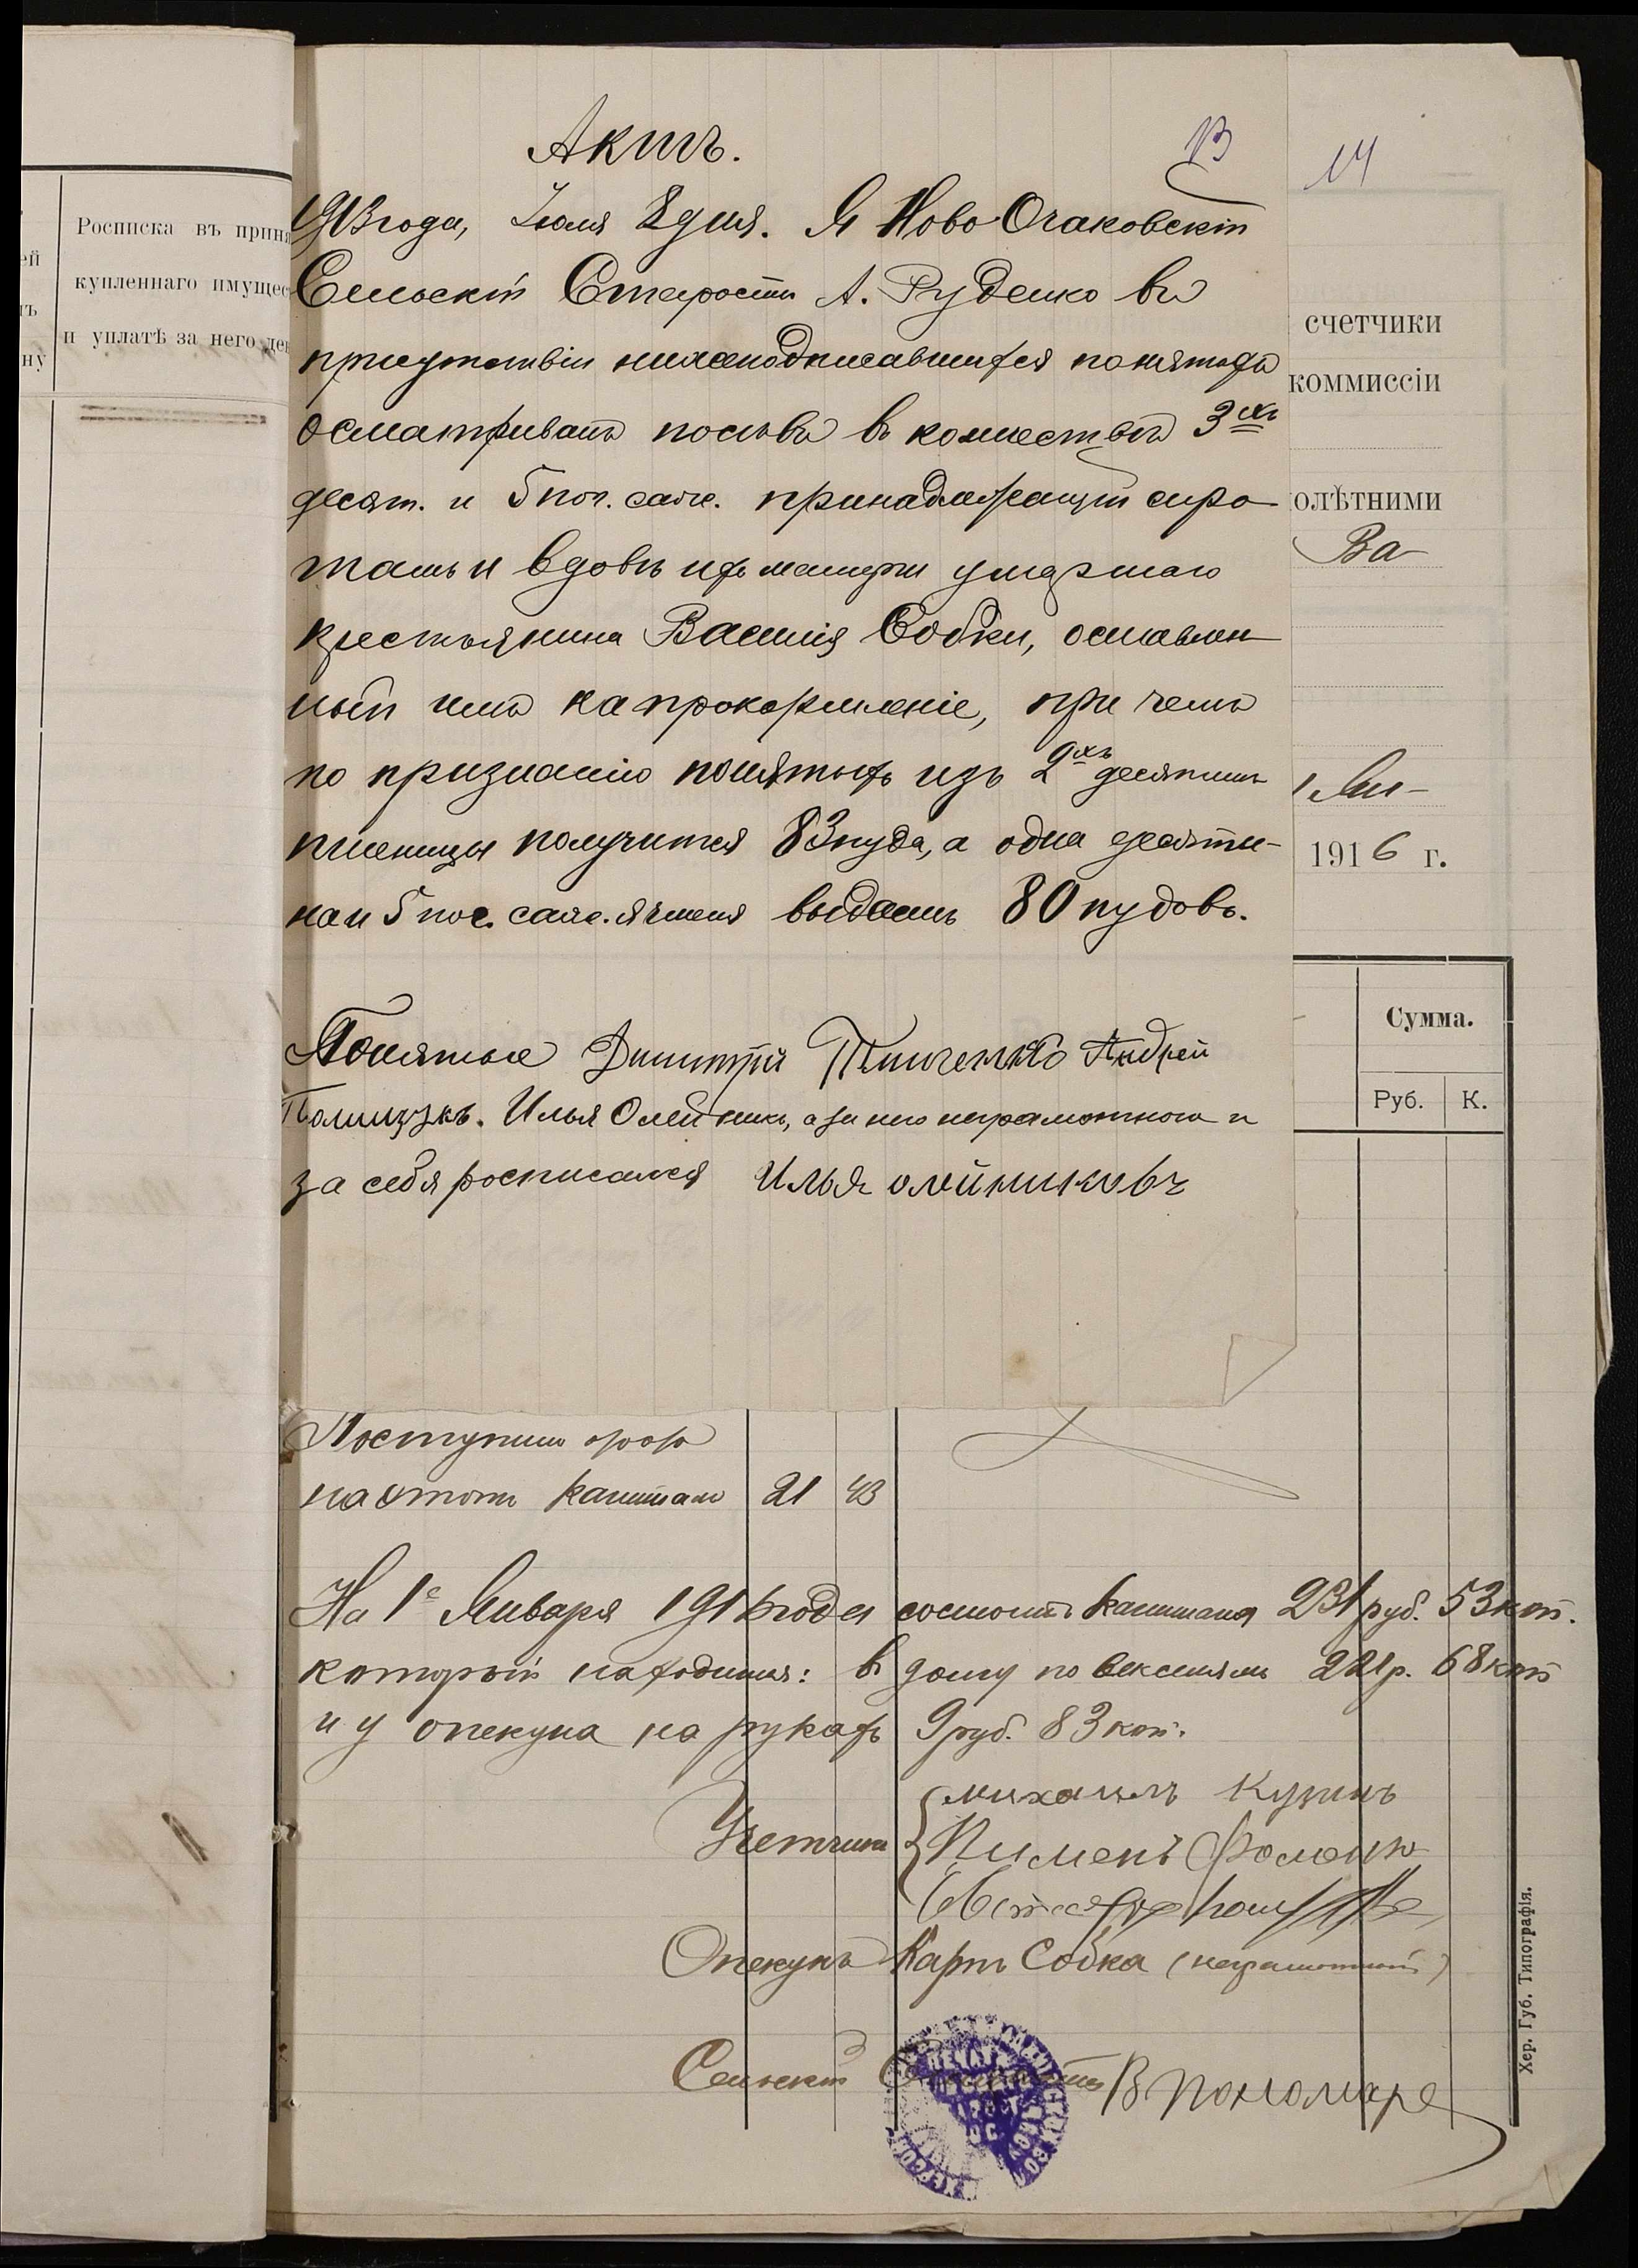 Росписка въ приня
купленнаго имущес
и уплатѣ за него ден
Актъ.
13
14
1913 года, Іюля 8 дня. Я Ново Очаковскій
Сельскій Староста А. Руденко въ
присутствіи нижеподписавшихся понятыхъ
осматривалъ посѣвъ въ количествѣ 3хъ
десят. и 5 пог. саж. принадлежащій сиро
тамъ и вдовѣ ихъ матери умершаго
крестьянина Василія Собки, оставлен
ный имъ на прокормленіе, при чемъ
по признанію понятыхъ изъ 2ухъ десятинъ
пшеницы получится 83 пуда, а одна десяти-
на и 5 пог. саж. ячменя выдастъ 80 пудовъ.
Понятые Димитрій Андрей
Илья Олейникъ, а за него неграмотного и
за себя росписался Илья олейниковъ
счетчики
коммиссіи
олѣтними
Ва-
1 Ян-
1916 г.
Сумма.
Руб. К.
Поступило
на этотъ капиталъ 21 43
На 1е Января 1916 года состоитъ капитала 231 руб. 53 коп.
который находится: въ долгу по векселямъ 221 р. 68 коп
и у опекуна на рукахъ 9 руб. 83 коп.
Учетчики михаилъ Кузинъ
Пименъ Фоменко
Опекунъ Карпъ Собка (неграмотный)
Сельскій Староста В Пономаре
Хер. Губ. Типографія.